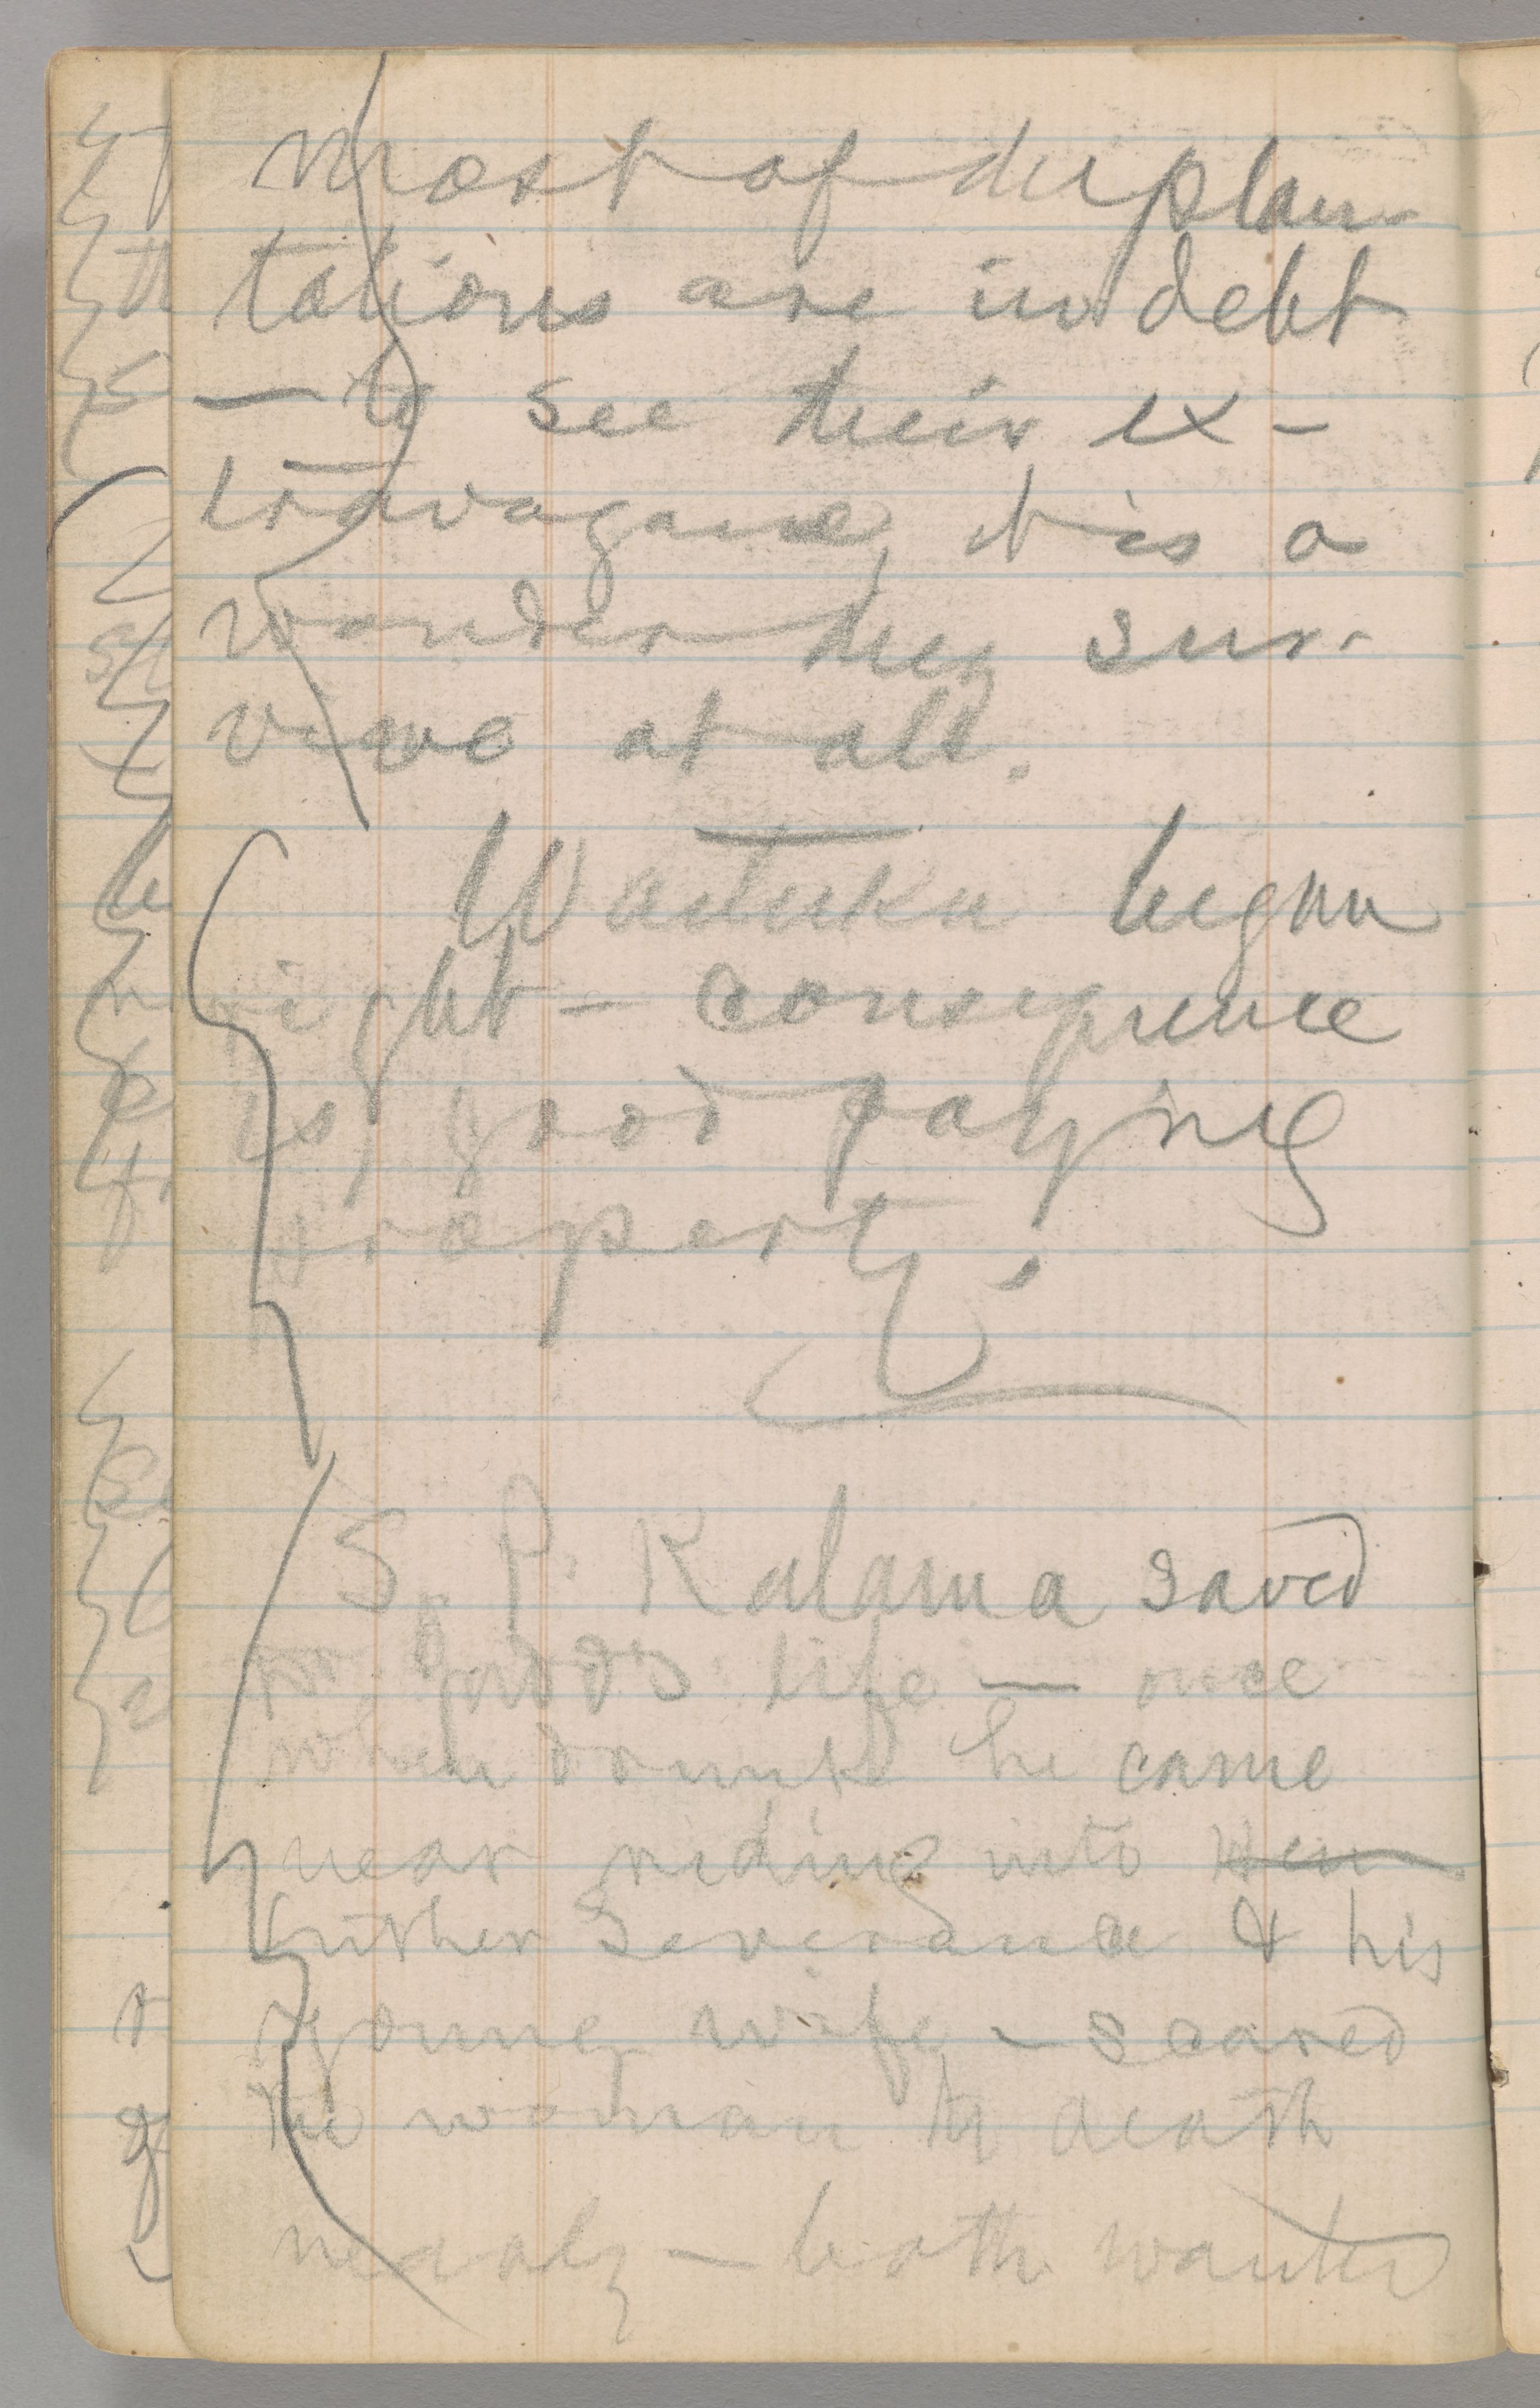 Most of the plan-
tations are in debt
— to see their ex-
travagance, it is a
wonder they sur-
vive at all.
Wailuku began
right — consequence
is, good paying
property.
S. P. Kalama saved
life — once
when drunk he came
near riding into
Luther Severance & his
young wife — scared
the woman to death
nearly — both wanted